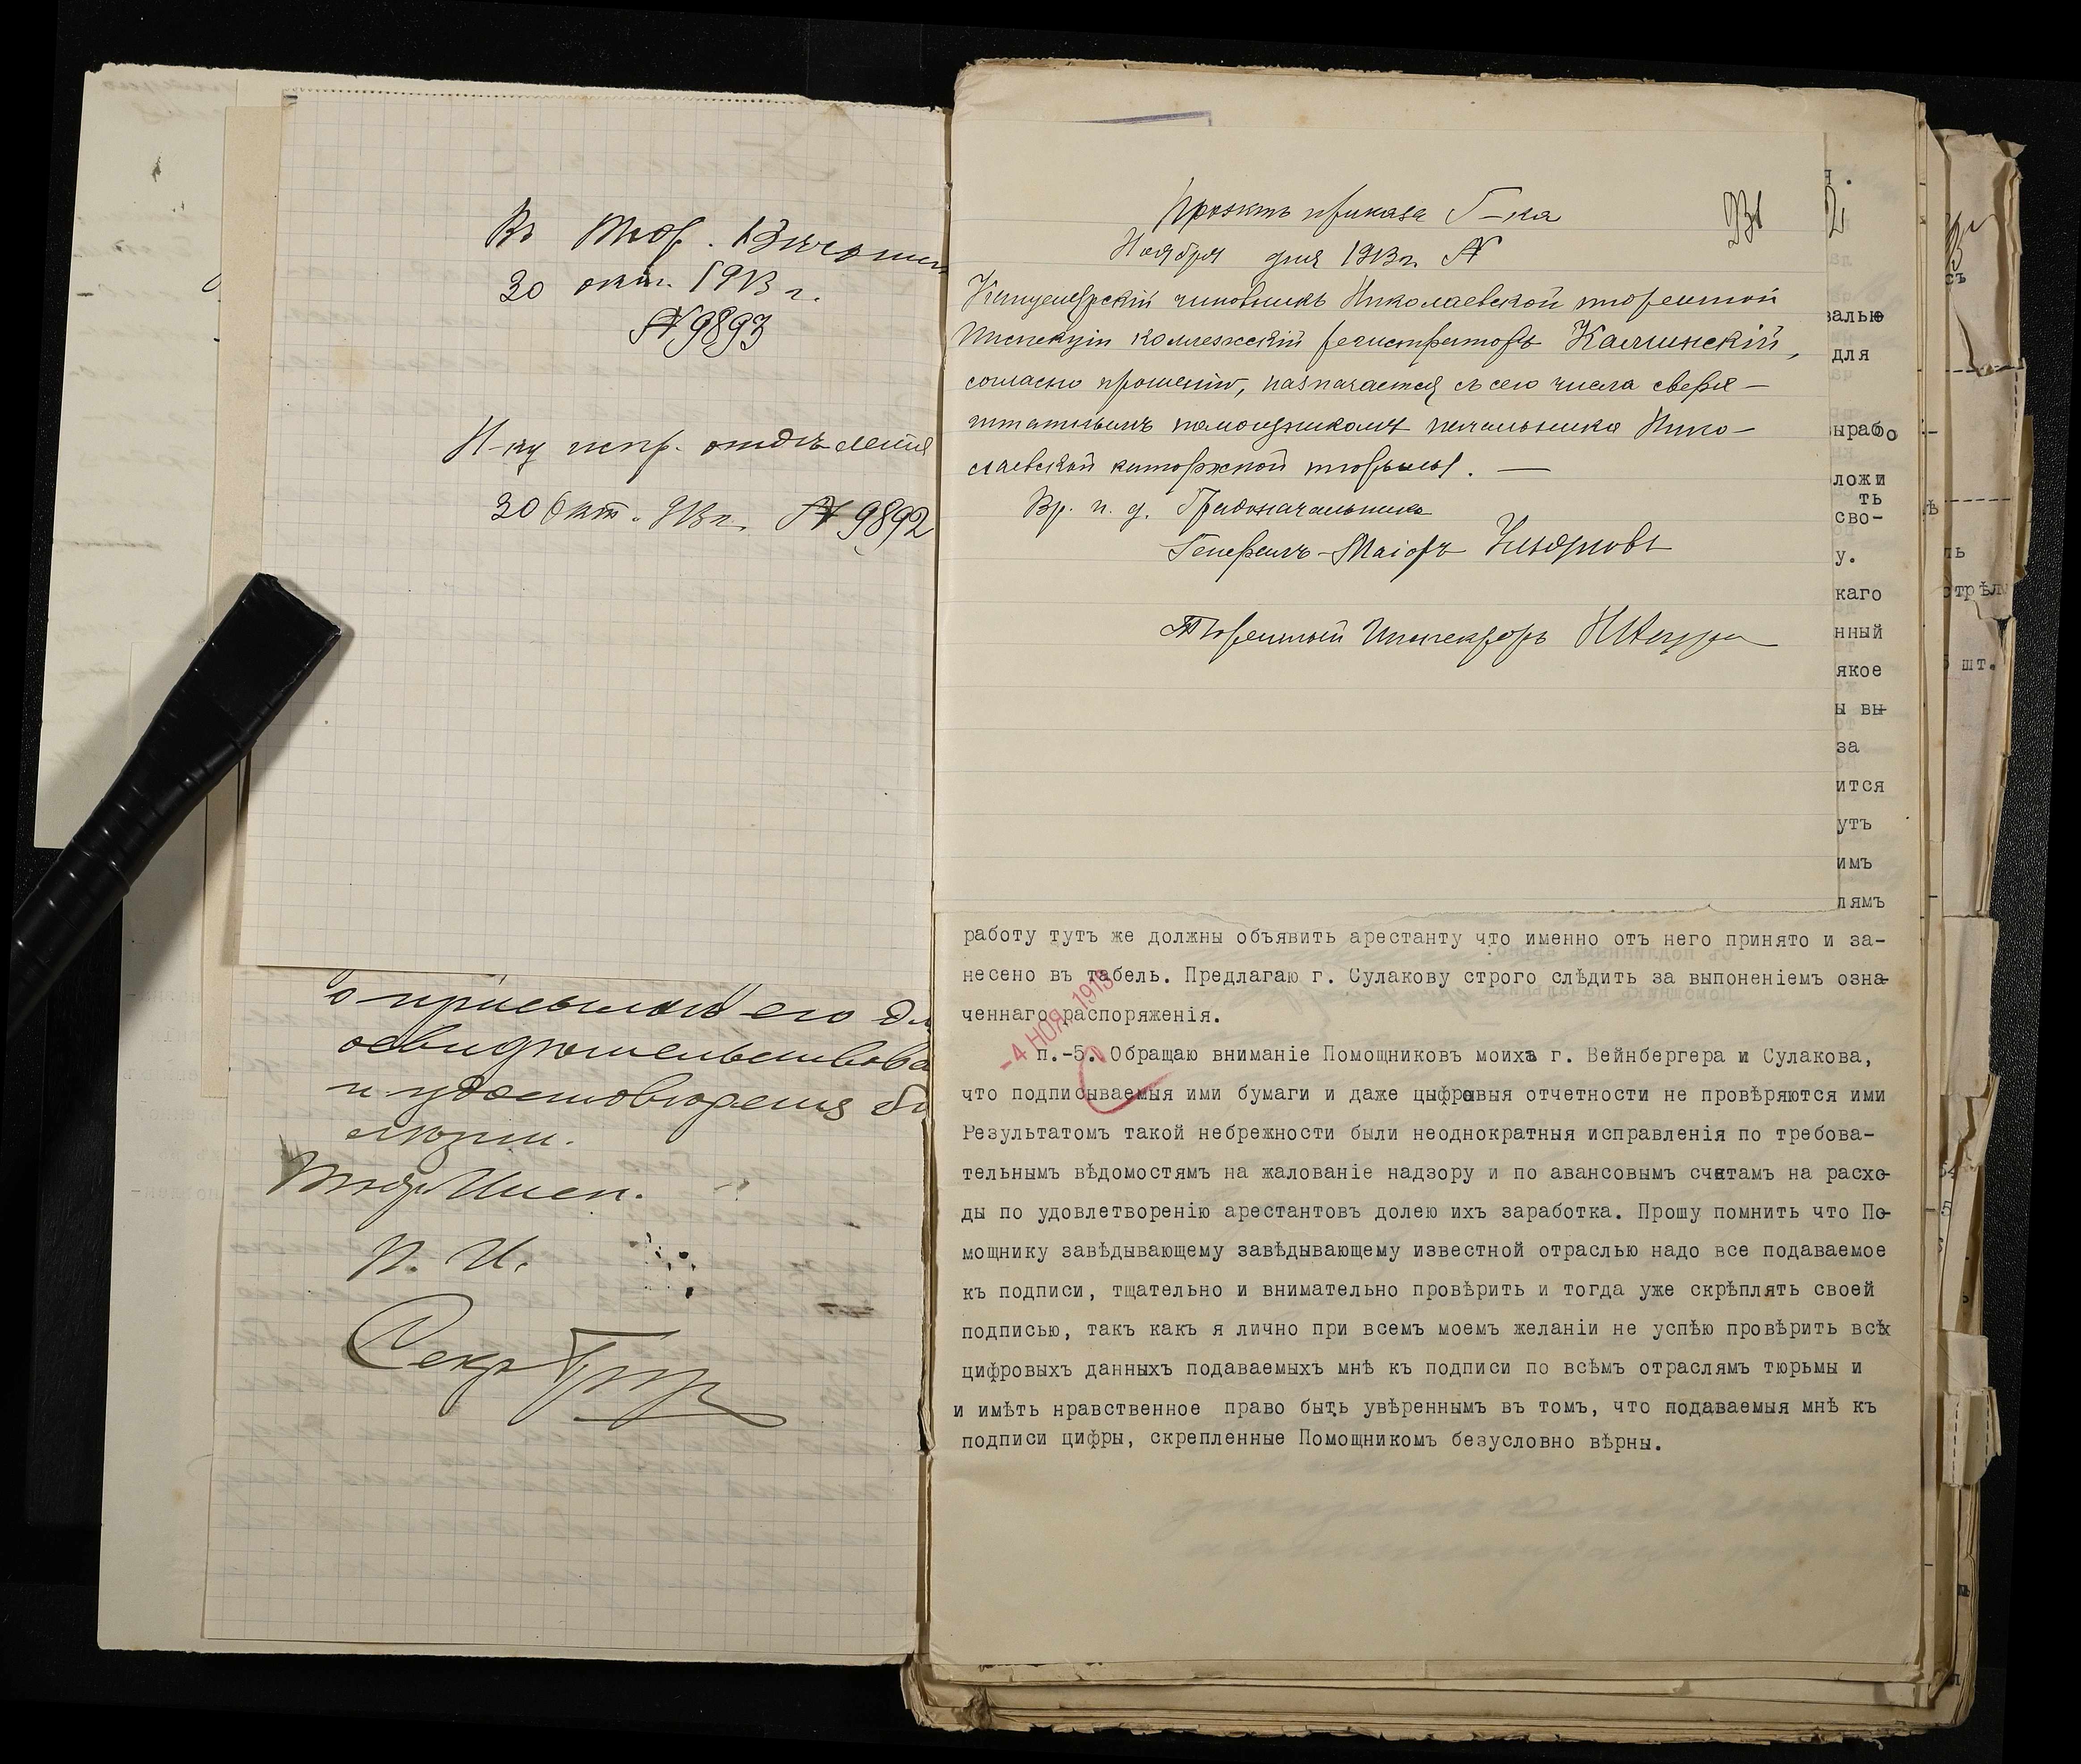 Въ Тюр.
30 окт. 1913 г.
№ 9893
Н-ку испр. отдѣленія
30 Окт. 913 г. № 9892
о присылкѣ его
освидѣтельствова
и удостовѣренія
Тюр. Инсп.
П. И.
Секр
Проэктъ приказа Г-ка
Ноября дня 1913 г. №
Канцелярскій чиновникъ Николаевской тюремной
Инспекціи коллежскій регистраторъ Калинскій,
согласно прошенію, назначается съ сего числа сверх-
штатнымъ помощникомъ начальника Нико-
лаевской каторжной тюрьмы. —
Вр. и. д. Градоначальника
Генералъ-Маіоръ
Тюремный Инспекторъ
2
валью
для
ыраб о
ложи
ть
сво-
у.
каго
нный
якое
ы вы
за
ится
утъ
имъ
лямъ
съ
ль
стрѣл
шт.
работу тутъ же должны объявить арестанту что именно отъ него принято и за-
несено въ табель. Предлагаю г. Сулакову строго слѣдить за выпоненіемъ озна-
ченнаго распоряженія.
-4 НОЯ 1913
п.-5. Обращаю вниманіе Помощниковъ моихъ г. Вейнбергера и Сулакова,
что подписываемыя ими бумаги и даже цыфровыя отчетности не провѣряются ими
Результатомъ такой небрежности были неоднократныя исправленія по требова-
тельнымъ вѣдомостямъ на жалованіе надзору и по авансовымъ счетамъ на расхо-
ды по удовлетворенію арестантовъ долею ихъ заработка. Прошу помнить что По-
мощнику завѣдывающему завѣдывающему известной отраслью надо все подаваемое
къ подписи, тщательно и внимательно провѣрить и тогда уже скрѣплять своей
подписью, такъ какъ я лично при всемъ моемъ желаніи не успѣю провѣрить всѣх
цифровыхъ данныхъ подаваемыхъ мнѣ къ подписи по всѣмъ отраслямъ тюрьмы и
и имѣть нравственное право быть увѣреннымъ въ томъ, что подаваемыя мнѣ къ
подписи цифры, скрепленные Помощникомъ безусловно вѣрны.